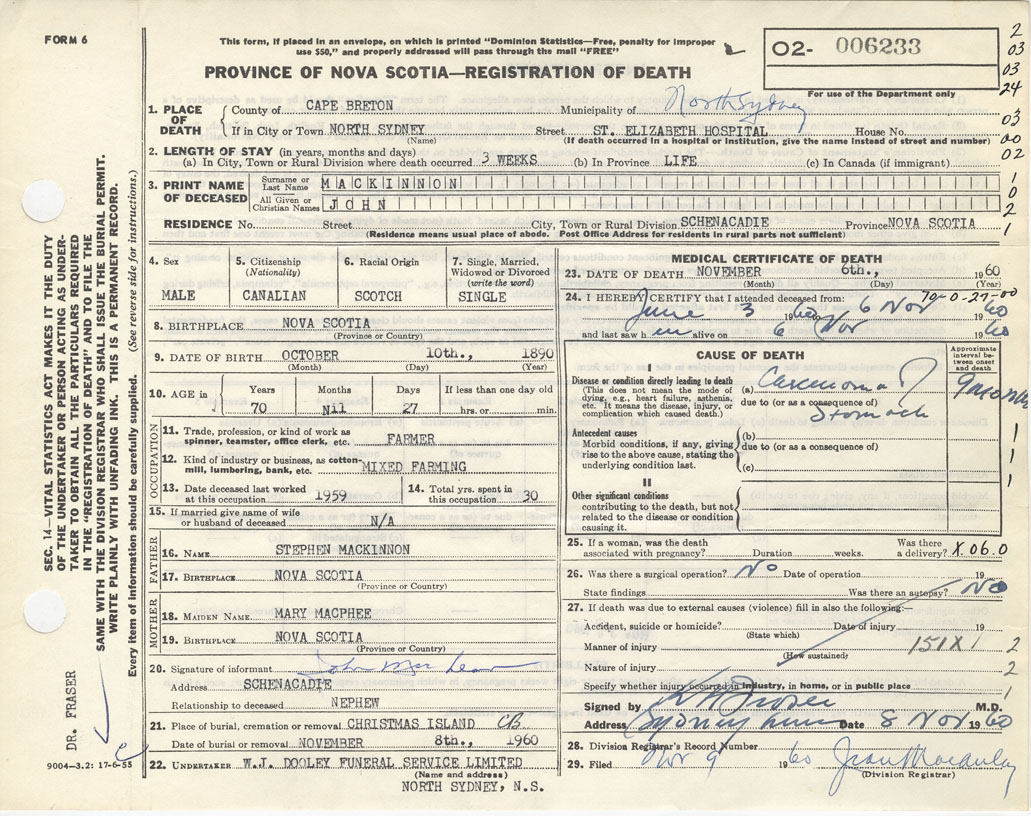 FORM 6
This form, if placed in an envelope, on which is printed "Dominion Statistics—Free, penalty for improper
use $50," and properly addressed will pass through the mail "FREE"
O2- 006233
For use of the Department only
2
03
03
24
03
00
02
1
0
2
1
PROVINCE OF NOVA SCOTIA—REGISTRATION OF DEATH
1. PLACE OF DEATH { County of CAPE BRETON Municipality of North Sydney
If in City or Town NORTH SYDNEY Street ST. ELIZABETH HOSPITAL House No.
(Name) (If death occurred in a hospital or institution, give the name instead of street and number)
2. LENGTH OF STAY (in years, months and days)
(a) In City, Town or Rural Division where death occurred 3 WEEKS (b) In Province LIFE (c) In Canada (if immigrant)
3. PRINT NAME OF DECEASED { Surname or Last Name MACKINNON
All Given or Christian Names JOHN
RESIDENCE No. Street City, Town or Rural Division SCHENACADIE Province NOVA SCOTIA
(Residence means usual place of abode. Post Office Address for residents in rural parts not sufficient)
4. Sex
MALE
5. Citizenship
(Nationality)
CANADIAN
6. Racial Origin
SCOTCH
7. Single, Married,
Widowed or Divorced
(write the word)
SINGLE
8. BIRTHPLACE NOVA SCOTIA
(Province or Country)
9. DATE OF BIRTH OCTOBER 10th., 1890
(Month) (Day) (Year)
10. AGE in { Years Months Days If less than one day old
70 Nil 27 hrs. or min.
OCCUPATION
11. Trade, profession, or kind of work as
spinner, teamster, office clerk, etc. FARMER
12. Kind of industry or business, as cotton-
mill, lumbering, bank, etc. MIXED FARMING
13. Date deceased last worked
at this occupation 1959
14. Total yrs. spent in
this occupation 30
15. If married give name of wife
or husband of deceased N/A
FATHER
16. NAME STEPHEN MACKINNON
17. BIRTHPLACE NOVA SCOTIA
(Province or Country)
MOTHER
18. MAIDEN NAME MARY MACPHEE
19. BIRTHPLACE NOVA SCOTIA
(Province or Country)
20. Signature of informant John MacLean
Address SCHENACADIE
Relationship to deceased NEPHEW
21. Place of burial, cremation or removal CHRISTMAS ISLAND CB
Date of burial or removal NOVEMBER 8th., 1960
22. UNDERTAKER W.J. DOOLEY FUNERAL SERVICE LIMITED
(Name and address)
NORTH SYDNEY, N.S.
MEDICAL CERTIFICATE OF DEATH
23. DATE OF DEATH NOVEMBER 6th., 1960
(Month) (Day) (Year)
70-0-27-00
24. I HEREBY CERTIFY that I attended deceased from:
June 3 1960 6 Nov 1960
and last saw h im alive on 6 Nov 1960
CAUSE OF DEATH
Approximate
interval be-
tween onset
and death
I
Disease or condition directly leading to death
(This does not mean the mode of
dying, e.g., heart failure, asthenia,
etc. It means the disease, injury, or
complication which caused death.)
(a) Carcinoma 9 months
due to (or as a consequence of)
Stomach
Antecedent causes
Morbid conditions, if any, giving
rise to the above cause, stating the
underlying condition last.
(b)
due to (or as a consequence of)
(c)
1
1
1
II
Other significant conditions
contributing to the death, but not
related to the disease or condition
causing it.
25. If a woman, was the death
associated with pregnancy? Duration weeks. Was there
a delivery? X 06.0
26. Was there a surgical operation? No Date of operation 19
State findings Was there an autopsy? No
27. If death was due to external causes (violence) fill in also the following:—
Accident, suicide or homicide? Date of injury 19
(State which)
Manner of injury 151X1 2
(How sustained)
Nature of injury 2
Specify whether injury occurred in industry, in home, or in public place 1
Signed by Fraser M.D.
Address Sydney Mines Date 8 Nov 1960
28. Division Registrar's Record Number
29. Filed Nov 9 1960 Jean Macaulay
(Division Registrar)
SEC. 14—VITAL STATISTICS ACT MAKES IT THE DUTY
OF THE UNDERTAKER OR PERSON ACTING AS UNDER-
TAKER TO OBTAIN ALL THE PARTICULARS REQUIRED
IN THE "REGISTRATION OF DEATH" AND TO FILE THE
SAME WITH THE DIVISION REGISTRAR WHO SHALL ISSUE THE BURIAL PERMIT.
WRITE PLAINLY WITH UNFADING INK. THIS IS A PERMANENT RECORD.
Every item of information should be carefully supplied. (See reverse side for instructions.)
DR. FRASER
9004-3.2: 17-6-55